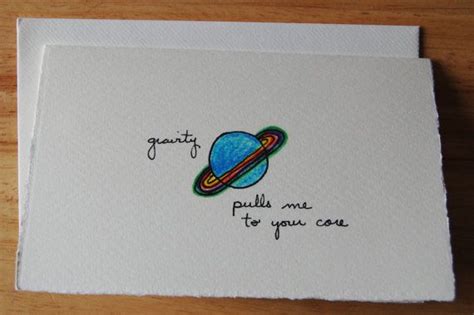 gravity
pulls me
to your core